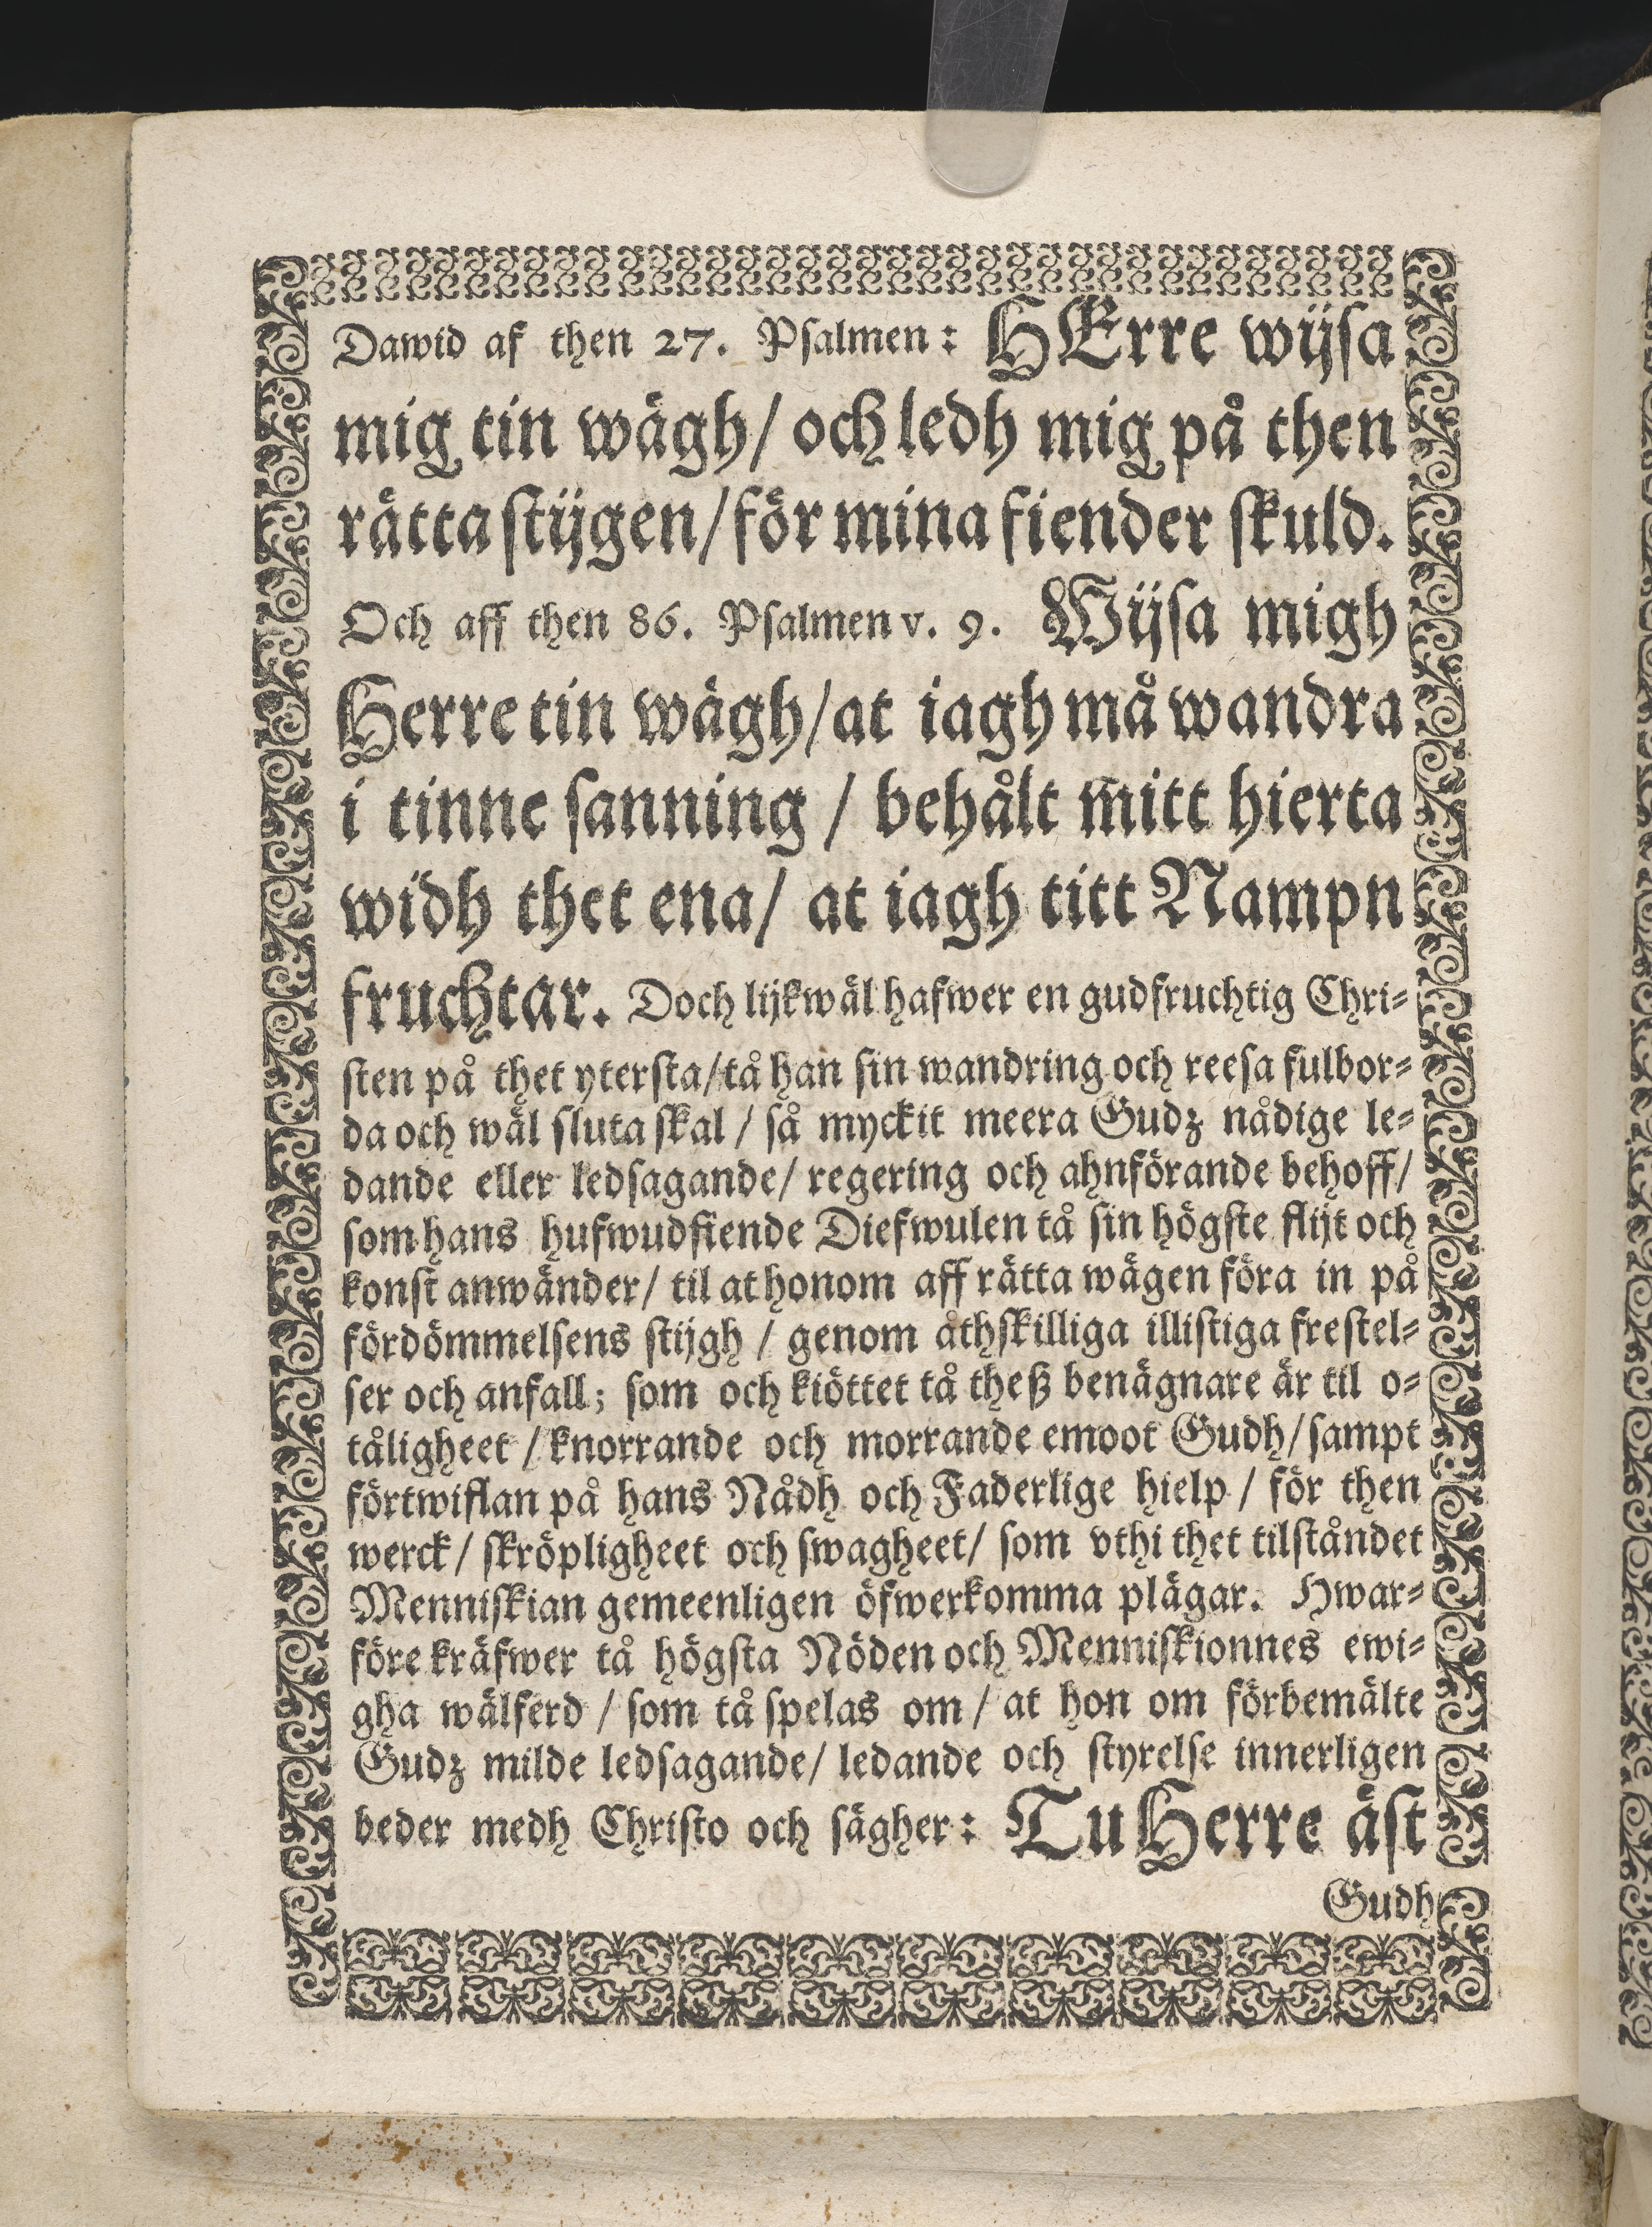 Dawid af then 27. Psalmen: HErre wijsa
mig tin wägh/ och ledh mig på then
rätta stijgen/ för mina fiender skuld.
Och aff then 86. Psalmen v. 9. Wijsa migh
Herre tin wägh/ at iagh må wandra
i tinne sanning / behålt mitt hierta
widh thet ena/ at iagh titt Nampn
fruchtar. Doch lijkwäl hafwer en gudfruchtig Chri-
sten på thet ytersta/ tå han sin wandring och reesa fulbor-
da och wäl sluta skal / så myckit meera Gudz nådige le-
dande eller ledsagande/ regering och ahnförande behoff/
som hans hufwudfiende Diefwulen tå sin högste flijt och
konst anwänder/ til at honom aff rätta wägen föra in på
fördömmelsens stijgh / genom åthskilliga illistiga frestel-
ser och anfall; som och kiöttet tå theß benägnare är til o-
tåligheet / knorrande och morrande emoot Gudh/ sampt
förtwiflan på hans Nådh och Faderlige hielp / för then
werck/ skröpligheet och swagheet/ som vthi thet tilståndet
Menniskian gemeenligen öfwerkomma plägar. Hwar-
före kräfwer tå högsta Nöden och Menniskionnes ewi-
gha wälferd / som tå spelas om / at hon om förbemälte
Gudz milde ledsagande/ ledande och styrelse innerligen
beder medh Christo och sägher: Tu Herre äst
Gudh